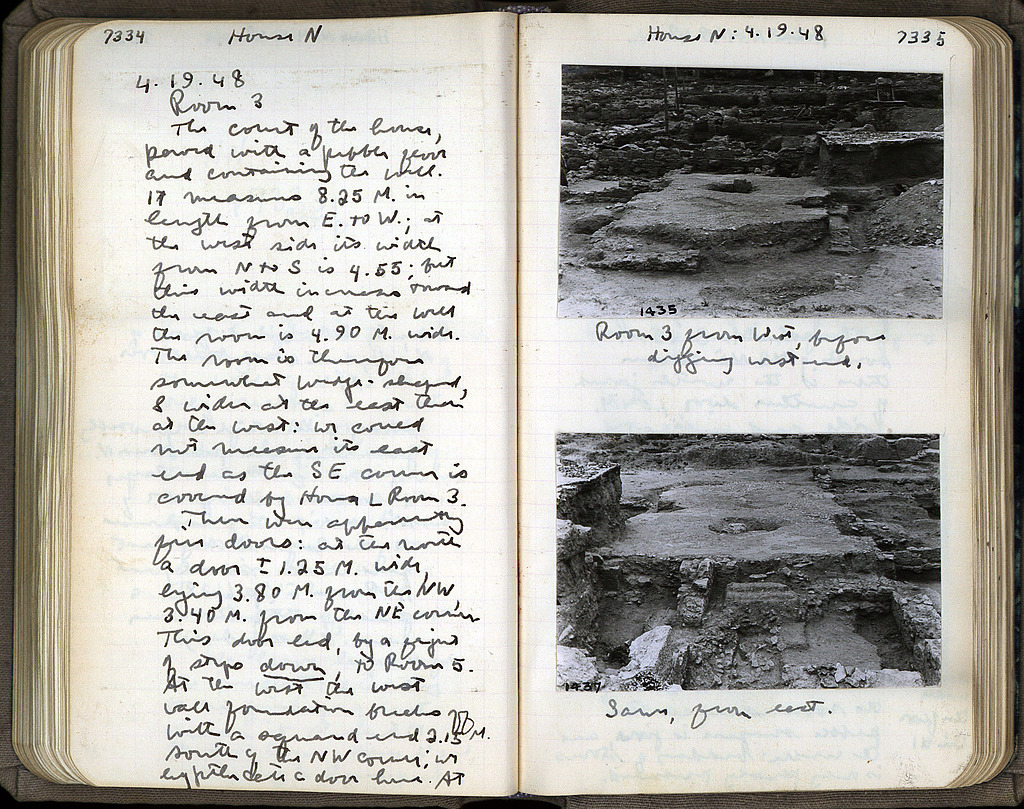 7334 House N
4.19.48
Room 3
The court of the house,
paved with a pebble floor
and containing the well.
It measures 8.25 M. in
length from E. to W.; at
the west side its width
from N to S is 4.55; but
this width increases toward
the east and at the well
the room is 4.90 M. wide.
The room is therefore
somewhat wedge-shaped,
& wider at the east than
at the west: we could
not measure its east
end as the SE corner is
covered by House L Room 3.
There were apparently
doors: at the north
a door ± 1.25 M. wide,
lying 3.80 M. from the NW,
3.40 M. from the NE corner.
This door led, by a flight
of steps down, to Room 5.
At the west the west
wall foundation breaks off
with a squared end 3.15 M.
south of the NW corner; we
hypothecate a door here. At
House N: 4.19.48 7335
1435
Room 3 from West, before
digging west end.
1437
Same, from east.